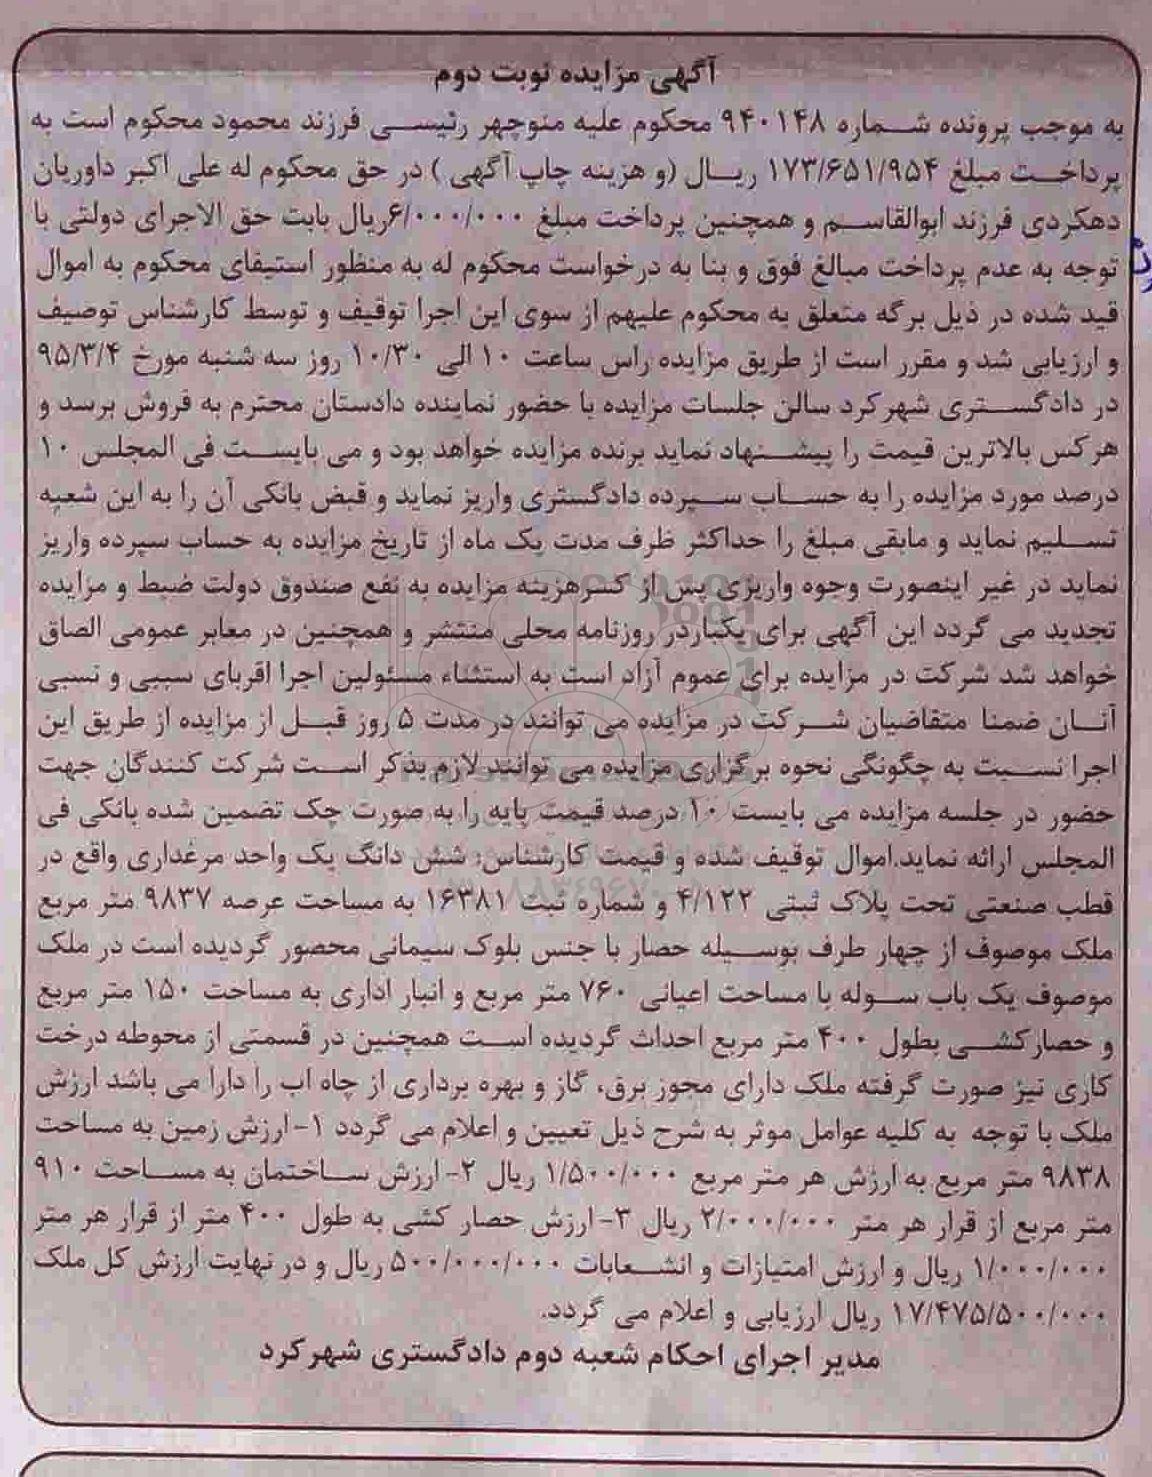 آگهی مزایده نوبت دوم
به موجب پرونده شماره ۹۴۰۱۴۸ محکوم علیه منوچهر رئیسی فرزند محمود محکوم است به
پرداخت مبلغ ۱۷۳/۶۵۱/۹۵۴ ریال (و هزینه چاپ آگهی ) در حق محکوم له علی اکبر داوریان
دهکردی فرزند ابوالقاسم و همچنین پرداخت مبلغ ۶/۰۰۰/۰۰۰ریال بابت حق الاجرای دولتی با
توجه به عدم پرداخت مبالغ فوق و بنا به درخواست محکوم له به منظور استیفای محکوم به اموال
قید شده در ذیل برگه متعلق به محکوم علیهم از سوی این اجرا توقیف و توسط کارشناس توصیف
و ارزیابی شد و مقرر است از طریق مزایده راس ساعت ۱۰ الی ۱۰/۳۰ روز سه شنبه مورخ ۹۵/۳/۴
در دادگستری شهرکرد سالن جلسات مزایده با حضور نماینده دادستان محترم به فروش برسد و
هرکس بالاترین قیمت را پیشنهاد نماید برنده مزایده خواهد بود و می بایست فی المجلس ۱۰
درصد مورد مزایده را به حساب سپرده دادگستری واریز نماید و قبض بانکی آن را به این شعبه
تسلیم نماید و مابقی مبلغ را حداکثر ظرف مدت یک ماه از تاریخ مزایده به حساب سپرده واریز
نماید در غیر اینصورت وجوه واریزی پس از کسرهزینه مزایده به نفع صندوق دولت ضبط و مزایده
تجدید می گردد این آگهی برای یکباردر روزنامه محلی منتشر و همچنین در معابر عمومی الصاق
خواهد شد شرکت در مزایده برای عموم آزاد است به استثناء مسئولین اجرا اقربای سببی و نسبی
آنان ضمنا متقاضیان شرکت در مزایده می توانند در مدت ۵ روز قبل از مزایده از طریق این
اجرا نسبت به چگونگی نحوه برگزاری مزایده می توانند لازم بذکر است شرکت کنندگان جهت
حضور در جلسه مزایده می بایست ۱۰ درصد قیمت پایه را به صورت چک تضمین شده بانکی فی
المجلس ارائه نماید.اموال توقیف شده و قیمت کارشناس: شش دانگ یک واحد مرغداری واقع در
قطب صنعتی تحت پلاک ثبتی ۴/۱۲۲ و شماره ثبت ۱۶۳۸۱ به مساحت عرصه ۹۸۳۷ متر مربع
ملک موصوف از چهار طرف بوسیله حصار با جنس بلوک سیمانی محصور گردیده است در ملک
موصوف یک باب سوله با مساحت اعیانی ۷۶۰ متر مربع و انبار اداری به مساحت ۱۵۰ متر مربع
و حصارکشی بطول ۴۰۰ متر مربع احداث گردیده است همچنین در قسمتی از محوطه درخت
کاری نیز صورت گرفته ملک دارای مجوز برق، گاز و بهره برداری از چاه اب را دارا می باشد ارزش
ملک با توجه به کلیه عوامل موثر به شرح ذیل تعیین و اعلام می گردد ۱-ارزش زمین به مساحت
۹۸۳۸ متر مربع به ارزش هر متر مربع ۱/۵۰۰/۰۰۰ ریال ۲-ارزش ساختمان به مساحت ۹۱۰
متر مربع از قرار هر متر ۲/۰۰۰/۰۰۰ ریال ۳-ارزش حصار کشی به طول ۴۰۰ متر از قرار هر متر
۱/۰۰۰/۰۰۰ ریال و ارزش امتیازات و انشعابات ۵۰۰/۰۰۰/۰۰۰ ریال و در نهایت ارزش کل ملک
۱۷/۴۷۵/۵۰۰/۰۰۰ ریال ارزیابی و اعلام می گردد.
مدیر اجرای احکام شعبه دوم دادگستری شهرکرد